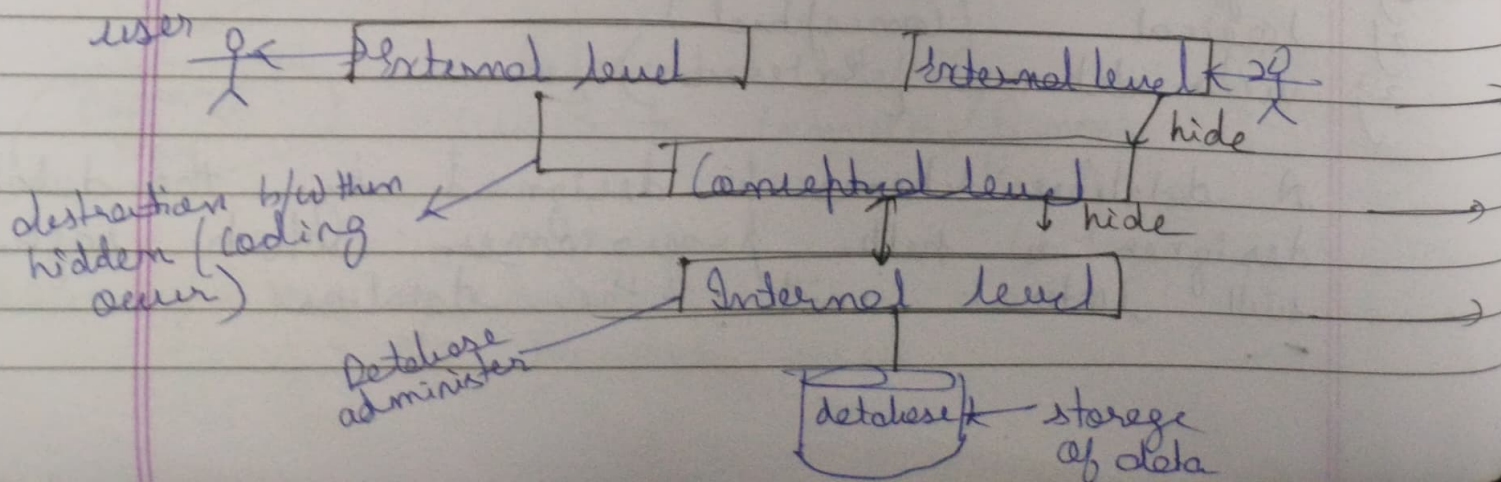 user
External level
External level
hide
Conceptual level
destraction b/w then
hidden (coding
occur)
hide
Internal level
Database
administer
database
storage
of data